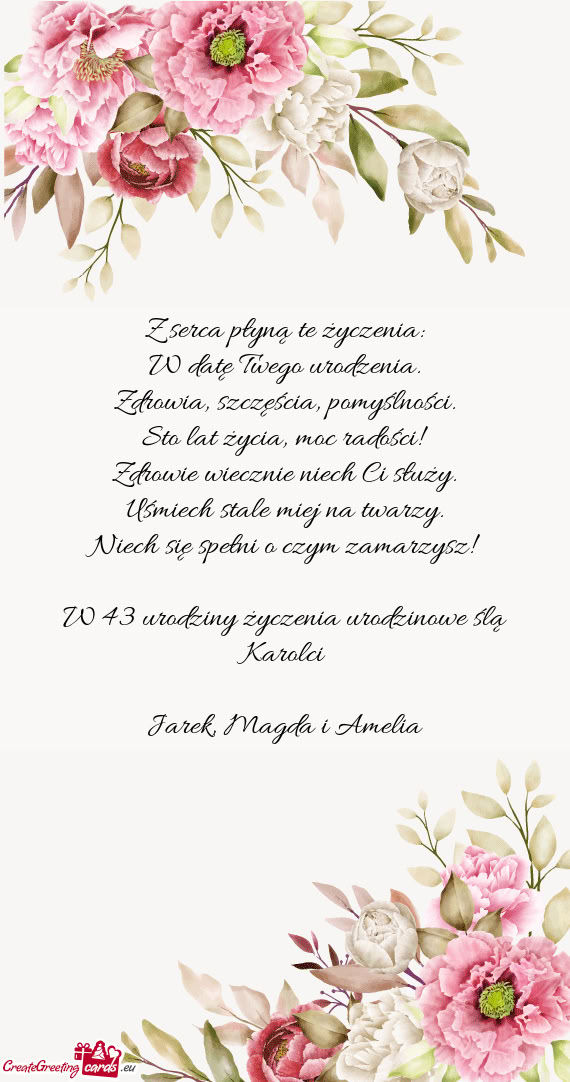 Z serca płyną te życzenia:
W datę Twego urodzenia.
Zdrowia, szczęścia, pomyślności.
Sto lat życia, moc radości!
Zdrowie wiecznie niech Ci służy.
Uśmiech stale miej na twarzy.
Niech się spełni o czym zamarzysz!
W 43 urodziny życzenia urodzinowe ślą
Karolci
Jarek, Magda i Amelia
CreateGreeting cards .eu